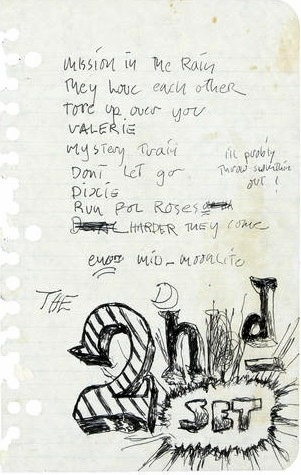 Mission in The Rain
They love each other
Tore up over you
VALERIE
Mystery Train
Dont Let go
I'll probly
Throw something
out !
DIXIE
Run FOR Roses
HARDER THEY COME
end MID-MOONLITE
THE
2nd
SET